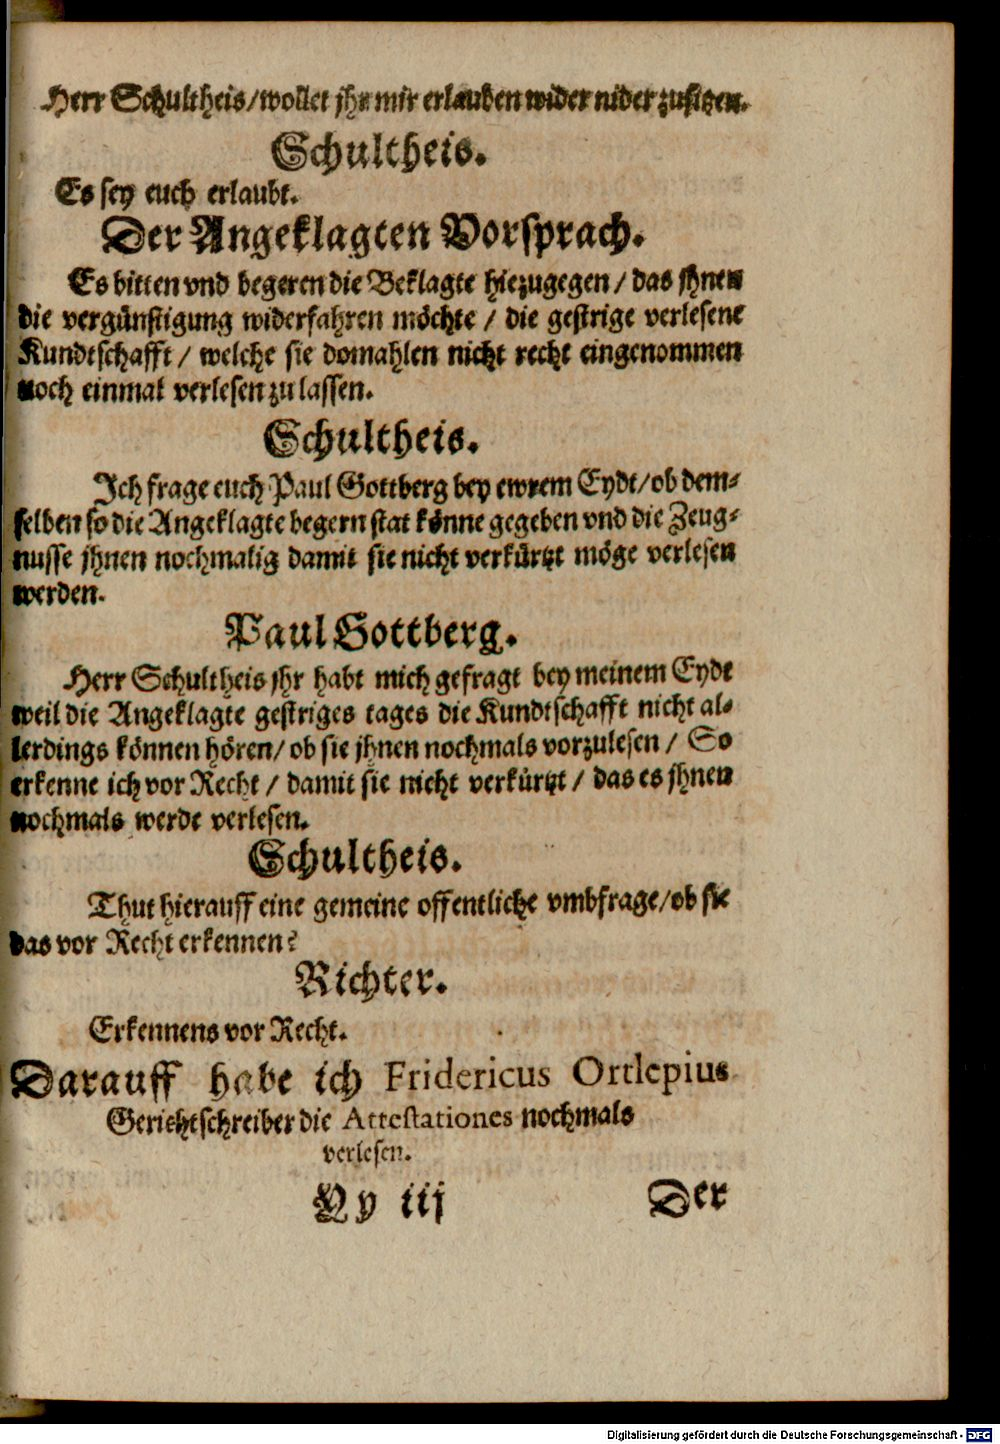 Herr Schultheis/wollet jhr mir erlauben wider nider zusitzen.
Schultheis.
Es sey euch erlaubt.
Der Angeklagten Vorsprach.
Es bitten vnd begeren die Beklagte hiezugegen / das jhnen
die vergünstigung widerfahren möchte / die gestrige verlesene
Kundtschafft / welche sie domahlen nicht recht eingenommen
noch einmal verlesen zu lassen.
Schultheis.
Ich frage euch Paul Gottberg bey ewrem Eydt/ob dem-
selben so die Angeklagte begern stat könne gegeben vnd die Zeug-
nusse jhnen nochmalig damit sie nicht verkürtzt möge verlesen
werden.
Paul Gottberg.
Herr Schultheis jhr habt mich gefragt bey meinem Eydt
weil die Angeklagte gestriges tages die Kundtschafft nicht al-
lerdings können hören/ ob sie jhnen nochmals vorzulesen / So
erkenne ich vor Recht / damit sie nicht verkürtzt / das es jhnen
nochmals werde verlesen.
Schultheis.
Thut hierauff eine gemeine offentliche vmbfrage/ob sie
das vor Recht erkennen?
Richter.
Erkennens vor Recht.
Darauff habe ich Fridericus Ortlepius
Gerichtschreiber die Attestationes nochmals
verlesen.
Yy iij Der
Digitalisierung gefördert durch die Deutsche Forschungsgemeinschaft - DFG